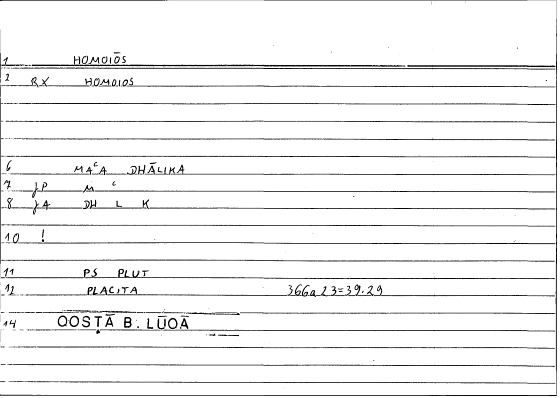 1 HOMOIŌS
2 RX HOMOIOS
6 MAᶜA DHĀLIKA
7 JP M ᶜ
8 JA DH L K
10 !
11 PS PLUT
12 PLACITA 366a23=39.29
14 QOSṬĀ B. LŪQĀ